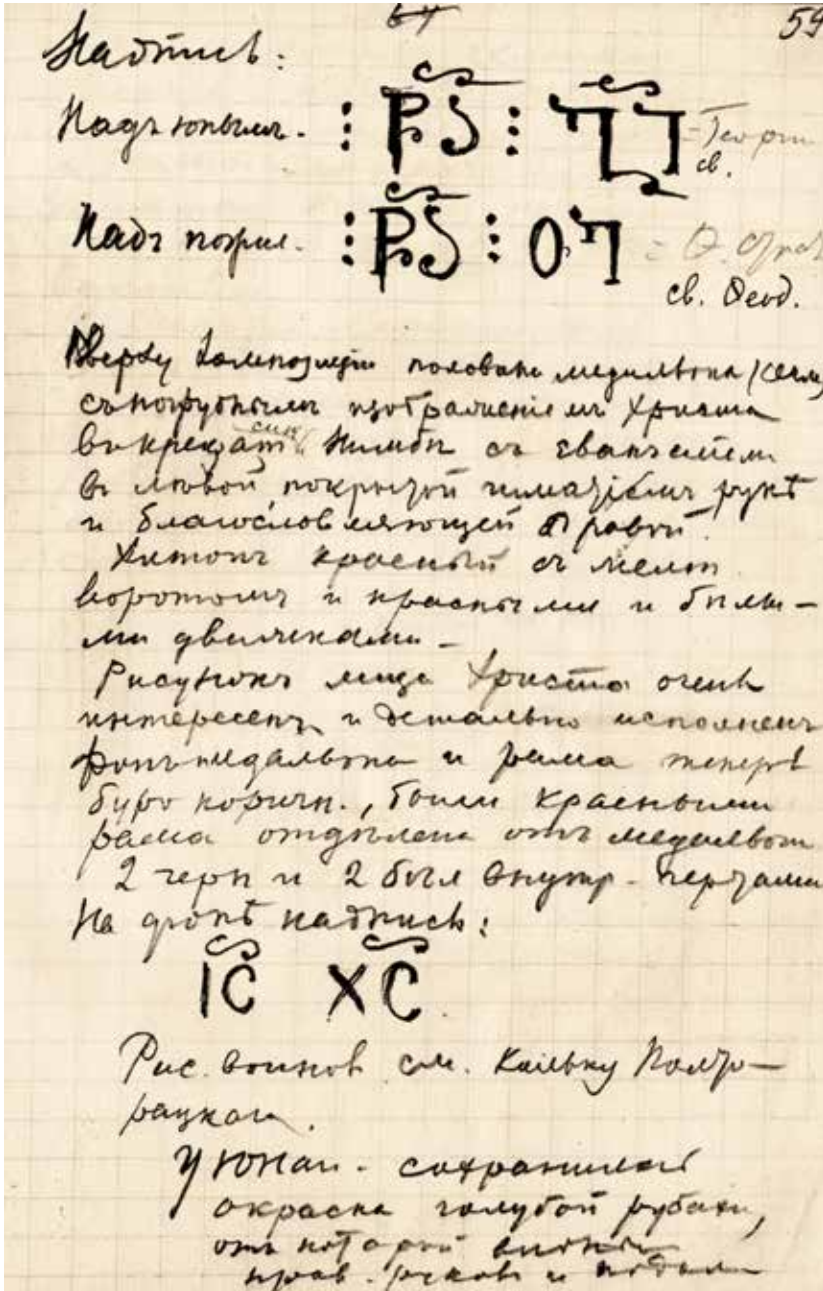 59
Надпись:
Надъ юным. = Георги
св.
Надъ пожил.
св. Ѳеод.
Вверху композиции половина медальона
съ погруднымъ изображеніемъ Христа
в нимбѣ съ евангелiем
в лѣвой покрытой гиматіемъ рукѣ
и благословляющей правой.
Хитонъ красный съ
воротомъ и красными и бѣлы-
ми движками -
Рисунокъ лица Христа очень
интересенъ и детально исполненъ
фонъ медальона и рама теперь
буро коричн., были красными
рама отдѣлена отъ медальона
2 черн и 2 бѣл внутр.
На фонѣ надпись:
IC XC
Рис. воинов см. кальку Полто-
рацкаго.
У юнаго - сохранилась
окраска голубой рубахи,
отъ которой
прав. рукавъ и